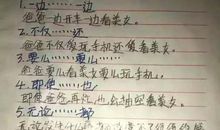 1.一边……一边
爸爸一边开车一边看美女。
2.不仅……还
爸爸不仅爱玩手机还爱看美女。
3.要么……要么……
爸爸要么看美女要么玩手机。
4.即使……也
即使爸爸再忙,也会抽空看美女。
5.无论……都